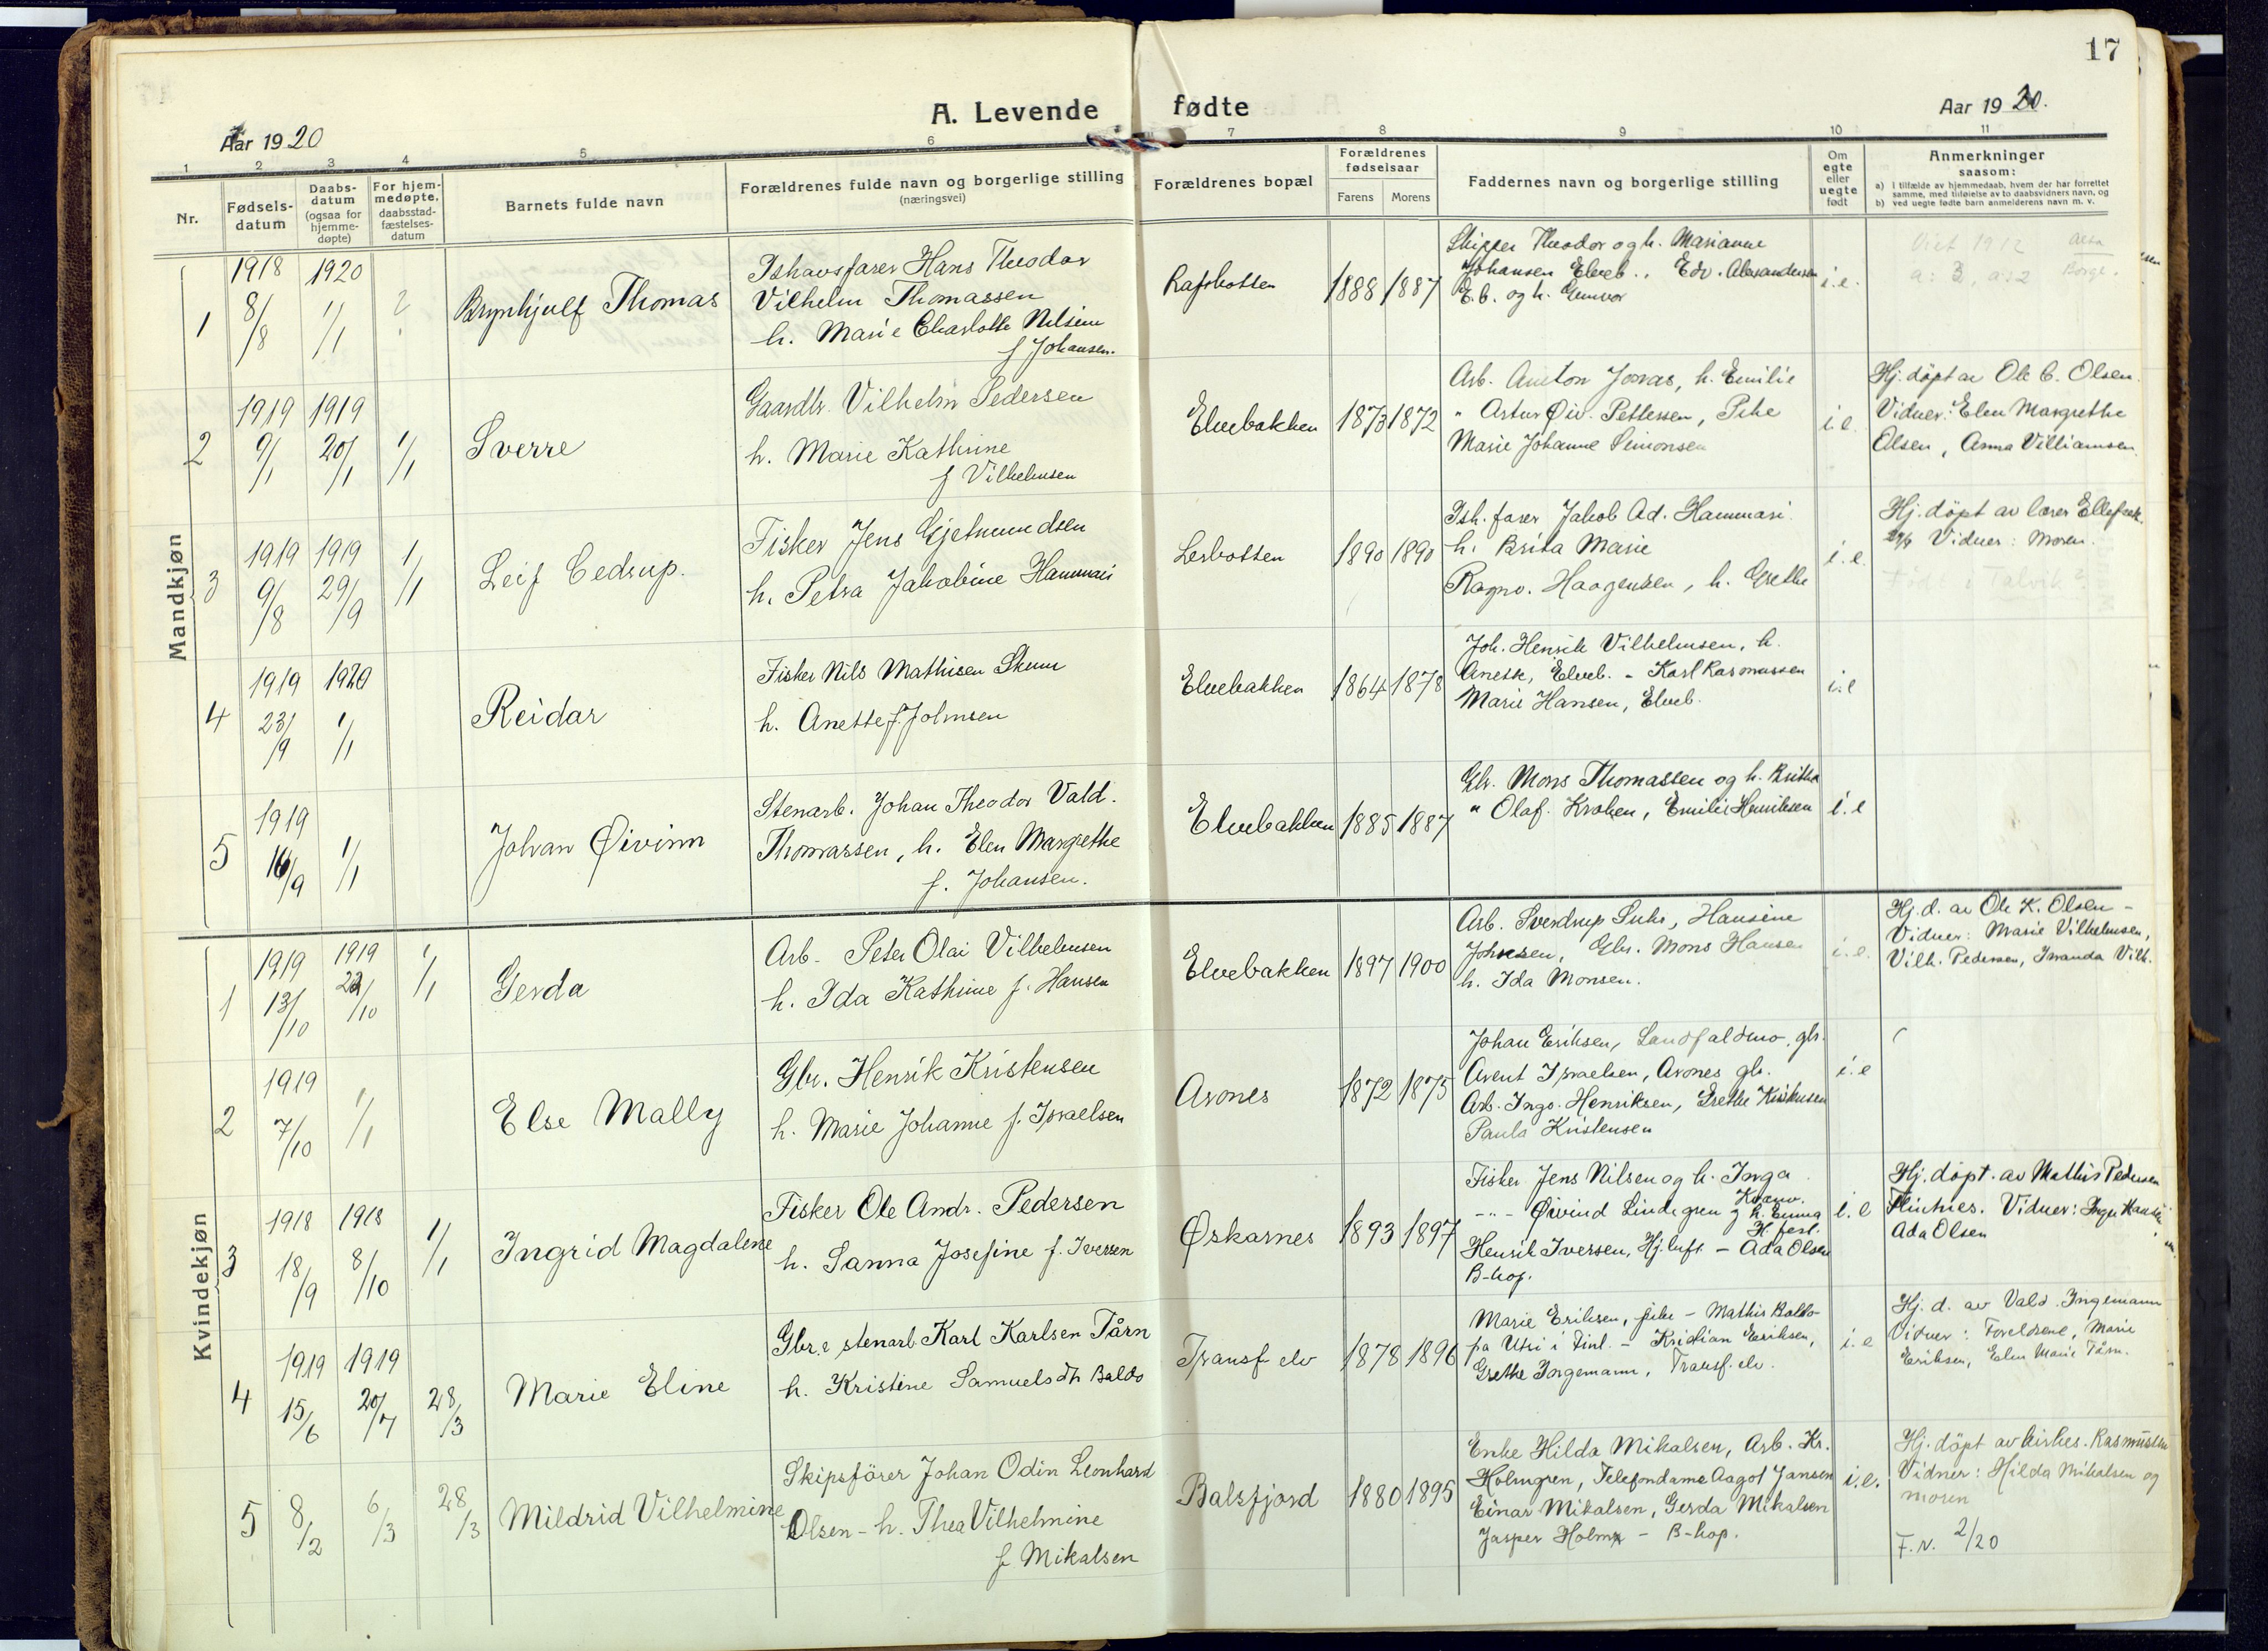 17
A. Levende fødte
Aar 1920
Aar 1920.
1 2 3 4 5 6 7 8 9 10 11
Nr.
Fødsels-
datum
Daabs-
datum
(ogsaa for
hjemme-
døpte)
For hjem-
medøpte,
daabsstad-
fæstelses-
datum
Barnets fulde navn
Forældrenes fulde navn og borgerlige stilling
(næringsvei)
Forældrenes bopæl
Forældrenes
fødselsaar
Farens Morens
Faddernes navn og borgerlige stilling
Om
egte
eller
uegte
født
Anmerkninger
saasom:
a) i tilfælde av hjemmedaab, hvem der har forrettet
samme, med tilføielse av to daabsvidners navn, og
b) ved uegte fødte barn anmelderens navn m. v.
Mandkjøn
1
1918
8/8
1920
1/1
?
Brynhjulf Thomas
Ishavsfarer Hans Theodor
Vilhelm Thomassen
h. Marie Charlotte Nilsine
f Johansen.
Rafsbotten
1888 1887
Skipper Theodor og h. Marianne
Johansen Elveb., Edv. Alexandersen
E.b. og h. Gunvor
i.e.
2
1919
9/1
1919
20/1
1/1
Sverre
Gaardbr. Vilhelm Pedersen
h. Marie Kathrine
f Vilhelmsen
Elvebakken
1873 1872
Arb. Anton Jonas, h. Emilie
" Artur Øiv. Pettersen, Pike
Marie Johanne Simonsen
i e.
Hj. döpt av Ole C. Olsen.
Vidner: Elen Margrethe
Olsen, Anna Villiamsen
3
1919
9/8
1919
29/9
1/1
Leif Cedrup.
Fisker Jens Gjetmundsen
h. Petra Jakobine Hammari
Lerbotten
1890 1890
Ish. farer Jakob Ad. Hammari
h. Brita Marie
Ragnv. Haagensen, h. Grethe
i. e.
Hj. döpt av lærer Ellefsæk.
29/9 Vidner: Moren.
Född i Talvik?
4
1919
23/9
1920
1/1
Reidar
Fisker Nils Mathisen Skum
h. Anette f. Johnsen
Elvebakken
1864 1878
Joh. Henrik Vilhelmsen, h.
Anette, Elveb. - Karl Rasmussen
Marie Hansen, Elveb.
i.e
5
1919
16/9
1/1
Johan Øivinn
Stenarb. Johan Theodor Vald.
Thomassen, h. Elen Margrethe
f. Johansen.
Elvebakken
1885 1887
Gbr. Mons Thomassen og h. Britha
" Olaf. Kroken, Emilie Henriksen
i. e
Kvindekjøn
1
1919
13/10
1919
22/10
1/1
Gerda
Arb - Peter Olai Vilhelmsen
h. Ida Kathrine f. Hansen
Elvebakken
1897 1900
Arb. Sverdrup Suhr, Hansine
Johnsen, Gbr. Mons Hansen
h. Ida Monsen.
i.e.
Hj. d. av Ole K. Olsen -
Vidner: Marie Vilhelmsen,
Vilh. Pedersen, Wanda Vilh.
2
1919
7/10
1/1
Else Mally
Gbr. Henrik Kristensen
h. Marie Johanne f. Israelsen
Arones
1872 1875
Johan Eriksen, Sandfaldmo, gbr.
Arent Israelsen, Arones gbr.
Arb. Ingv. Henriksen, Grethe Kristensen
Paula Kristensen
i. e
3
1918
18/9
1918
8/10
1/1
Ingrid Magdalene
Fisker Ole Andr. Pedersen
h. Sanna Josefine f. Iversen
Øskarnes
1893 1897
Fisker Jens Nilsen og h. Inga
Kvænv.
-"- Øivind Lindegren og h. Emma
H.fest.
Henrik Iversen, Hj.luft - Ada Olsen
B-hop.
i. e
Hj. döpt. av Mathis Pedersen
Flintnes. Vidner: Inga Hansen
Ada Olsen
4
1919
15/6
1919
20/7
28/3
Marie Eline
Gbr. & stenarb Karl Karlsen Tårn
h. Kristine Samuelsdtr Baldo
Transf. elv
1878 1896
Marie Eriksen, pike - Mathis Baldo
fra Utsi i Finl. - Kristian Eriksen,
Grethe Ingemann, Transf. elv.
i. e
Hj. d. av Vald. Ingemann
Vidner: Foreldrene, Marie
Eriksen, Elen Marie Tårn.
5
8/2
6/3
28/3
Mildrid Vilhelmine
Skipsförer Johan Odin Leonhard
Olsen - h. Thea Vilhelmine
f Mikalsen
Balsfjord
1880 1895
Enke Hilda Mikalsen, Arb. Kr.
Holmgren, Telefondame Aagot Jansen
Einar Mikalsen, Gerda Mikalsen
Jasper Holm - B-hop.
i. e.
Hj. döpt av kirkes. Rasmussen
Vidner: Hilda Mikalsen og
moren
F. N. 2/20